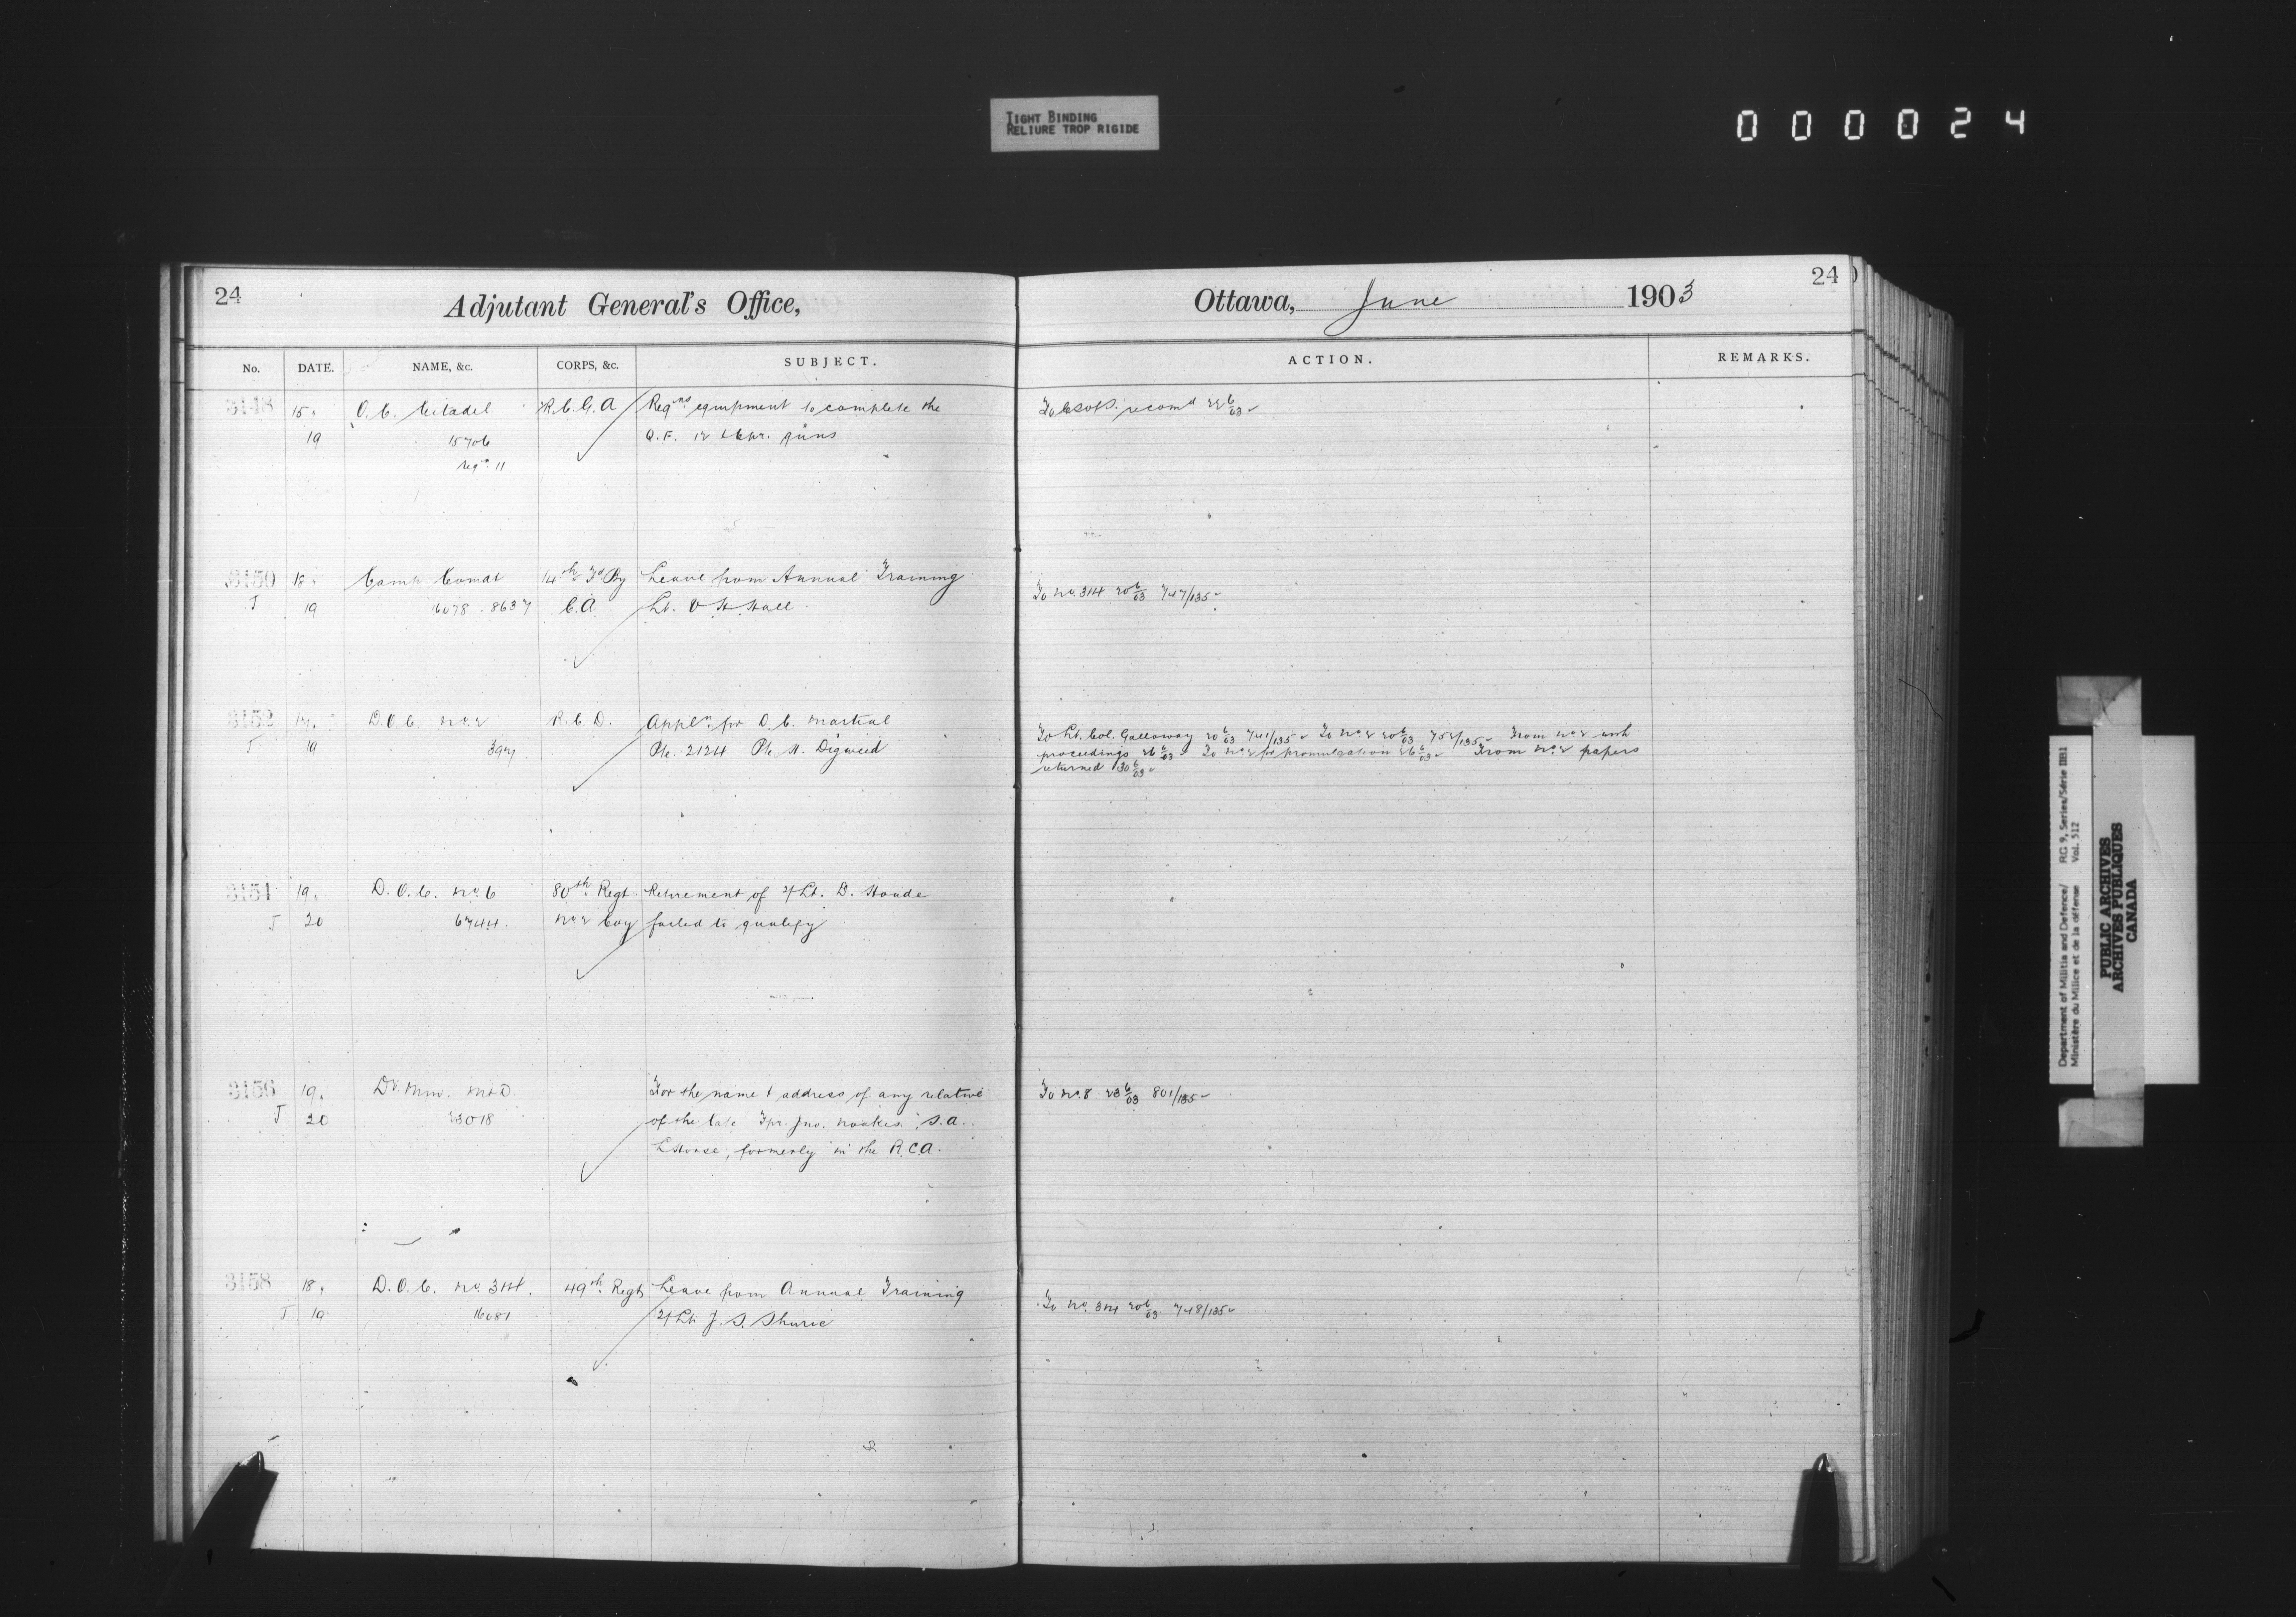 TIGHT BINDING
RELIURE TROP RIGIDE
000024
24
Adjutant General's Office,
No. DATE. NAME, &c. CORPS, &c. SUBJECT.
3148 15 O.C. Citadel R.C.G.A Reqns equipment to complete the
19 15706 Q.F. 12 & 6 pr. guns
reqn 11
3150 18 Camp Comdt 14th Fd By Leave from Annual Training
J 19 16078 . 8637 C.A Lt. V H Hall
3152 17 D.O.C. No 2 R.C.D. Appln for D.C. Martial
J 19 397 Pte. 2124 Pte H. Digweed
3154 19 D.O.C. No. 6 80th Regt Retirement of 2/Lt. D. Houde
J 20 6744 No 2 Coy failed to qualify
3156 19 Dy. Min. M&D. For the name & address of any relative
J 20 23018 of the late Tpr. Jno. Noakes. S.A.
L Horse, formerly in the R.C.A.
3158 18 D.O.C. No. 3&4. 49th Regt Leave from Annual Training
J 19 16081 2/Lt J. S. Shurie
24
Ottawa, June 1903
ACTION. REMARKS.
recomd 22 6/03
To No. 3&4 20 6/03 747/135
To Lt. Col. Galloway 20 6/03 741/135 To No 2 20 6/03 752/135 From No 2 with
proceedings 26 6/03 To No 2 for promulgation 26 6/03 From No 2 papers
returned 30 6/03
To No. 8 23 6/03 801/135
To No. 3&4 20 6/03 748/135
Department of Militia and Defence/ RG 9, Series/Série IIB1
Ministère du Milice et de la défense Vol. 512
PUBLIC ARCHIVES
ARCHIVES PUBLIQUES
CANADA